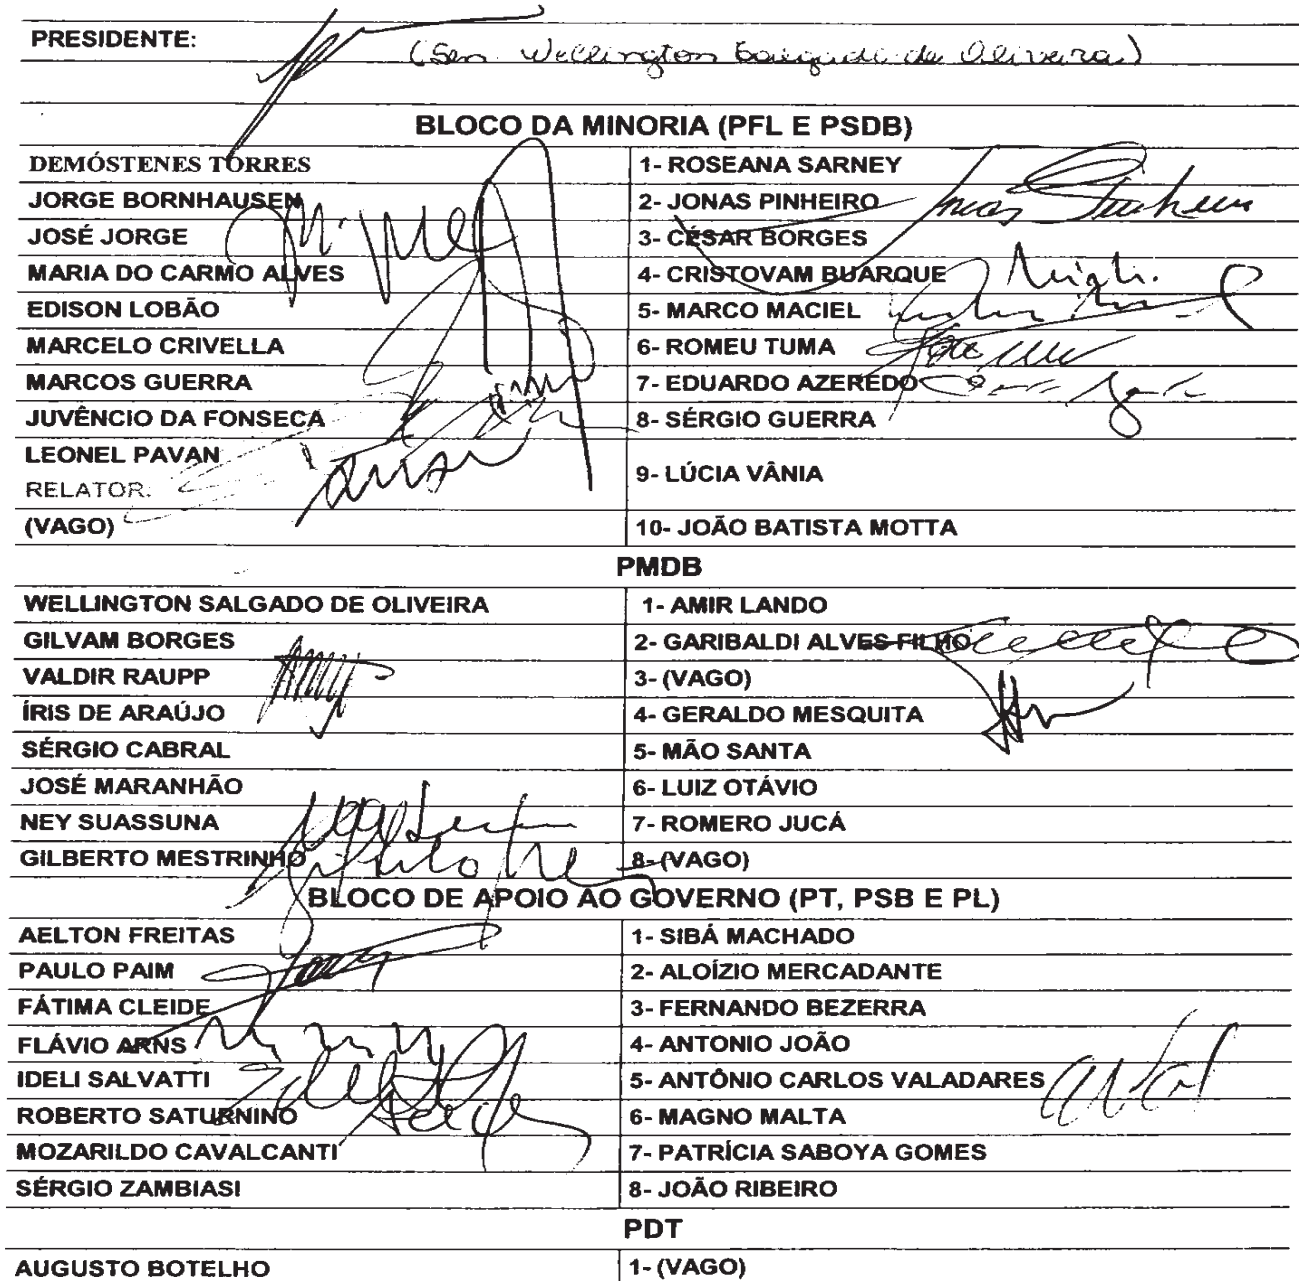 PRESIDENTE:
(Sen. Wellington Salgado de Oliveira)
BLOCO DA MINORIA (PFL E PSDB)
DEMÓSTENES TORRES 1- ROSEANA SARNEY
JORGE BORNHAUSEN 2- JONAS PINHEIRO
JOSÉ JORGE 3- CÉSAR BORGES
MARIA DO CARMO ALVES 4- CRISTOVAM BUARQUE
EDISON LOBÃO 5- MARCO MACIEL
MARCELO CRIVELLA 6- ROMEU TUMA
MARCOS GUERRA 7- EDUARDO AZEREDO
JUVÊNCIO DA FONSECA 8- SÉRGIO GUERRA
LEONEL PAVAN
RELATOR: 9- LÚCIA VÂNIA
(VAGO) 10- JOÃO BATISTA MOTTA
PMDB
WELLINGTON SALGADO DE OLIVEIRA 1- AMIR LANDO
GILVAM BORGES 2- GARIBALDI ALVES FILHO
VALDIR RAUPP 3- (VAGO)
ÍRIS DE ARAÚJO 4- GERALDO MESQUITA
SÉRGIO CABRAL 5- MÃO SANTA
JOSÉ MARANHÃO 6- LUIZ OTÁVIO
NEY SUASSUNA 7- ROMERO JUCÁ
GILBERTO MESTRINHO 8- (VAGO)
BLOCO DE APOIO AO GOVERNO (PT, PSB E PL)
AELTON FREITAS 1- SIBÁ MACHADO
PAULO PAIM 2- ALOÍZIO MERCADANTE
FÁTIMA CLEIDE 3- FERNANDO BEZERRA
FLÁVIO ARNS 4- ANTONIO JOÃO
IDELI SALVATTI 5- ANTÔNIO CARLOS VALADARES
ROBERTO SATURNINO 6- MAGNO MALTA
MOZARILDO CAVALCANTI 7- PATRÍCIA SABOYA GOMES
SÉRGIO ZAMBIASI 8- JOÃO RIBEIRO
PDT
AUGUSTO BOTELHO 1- (VAGO)